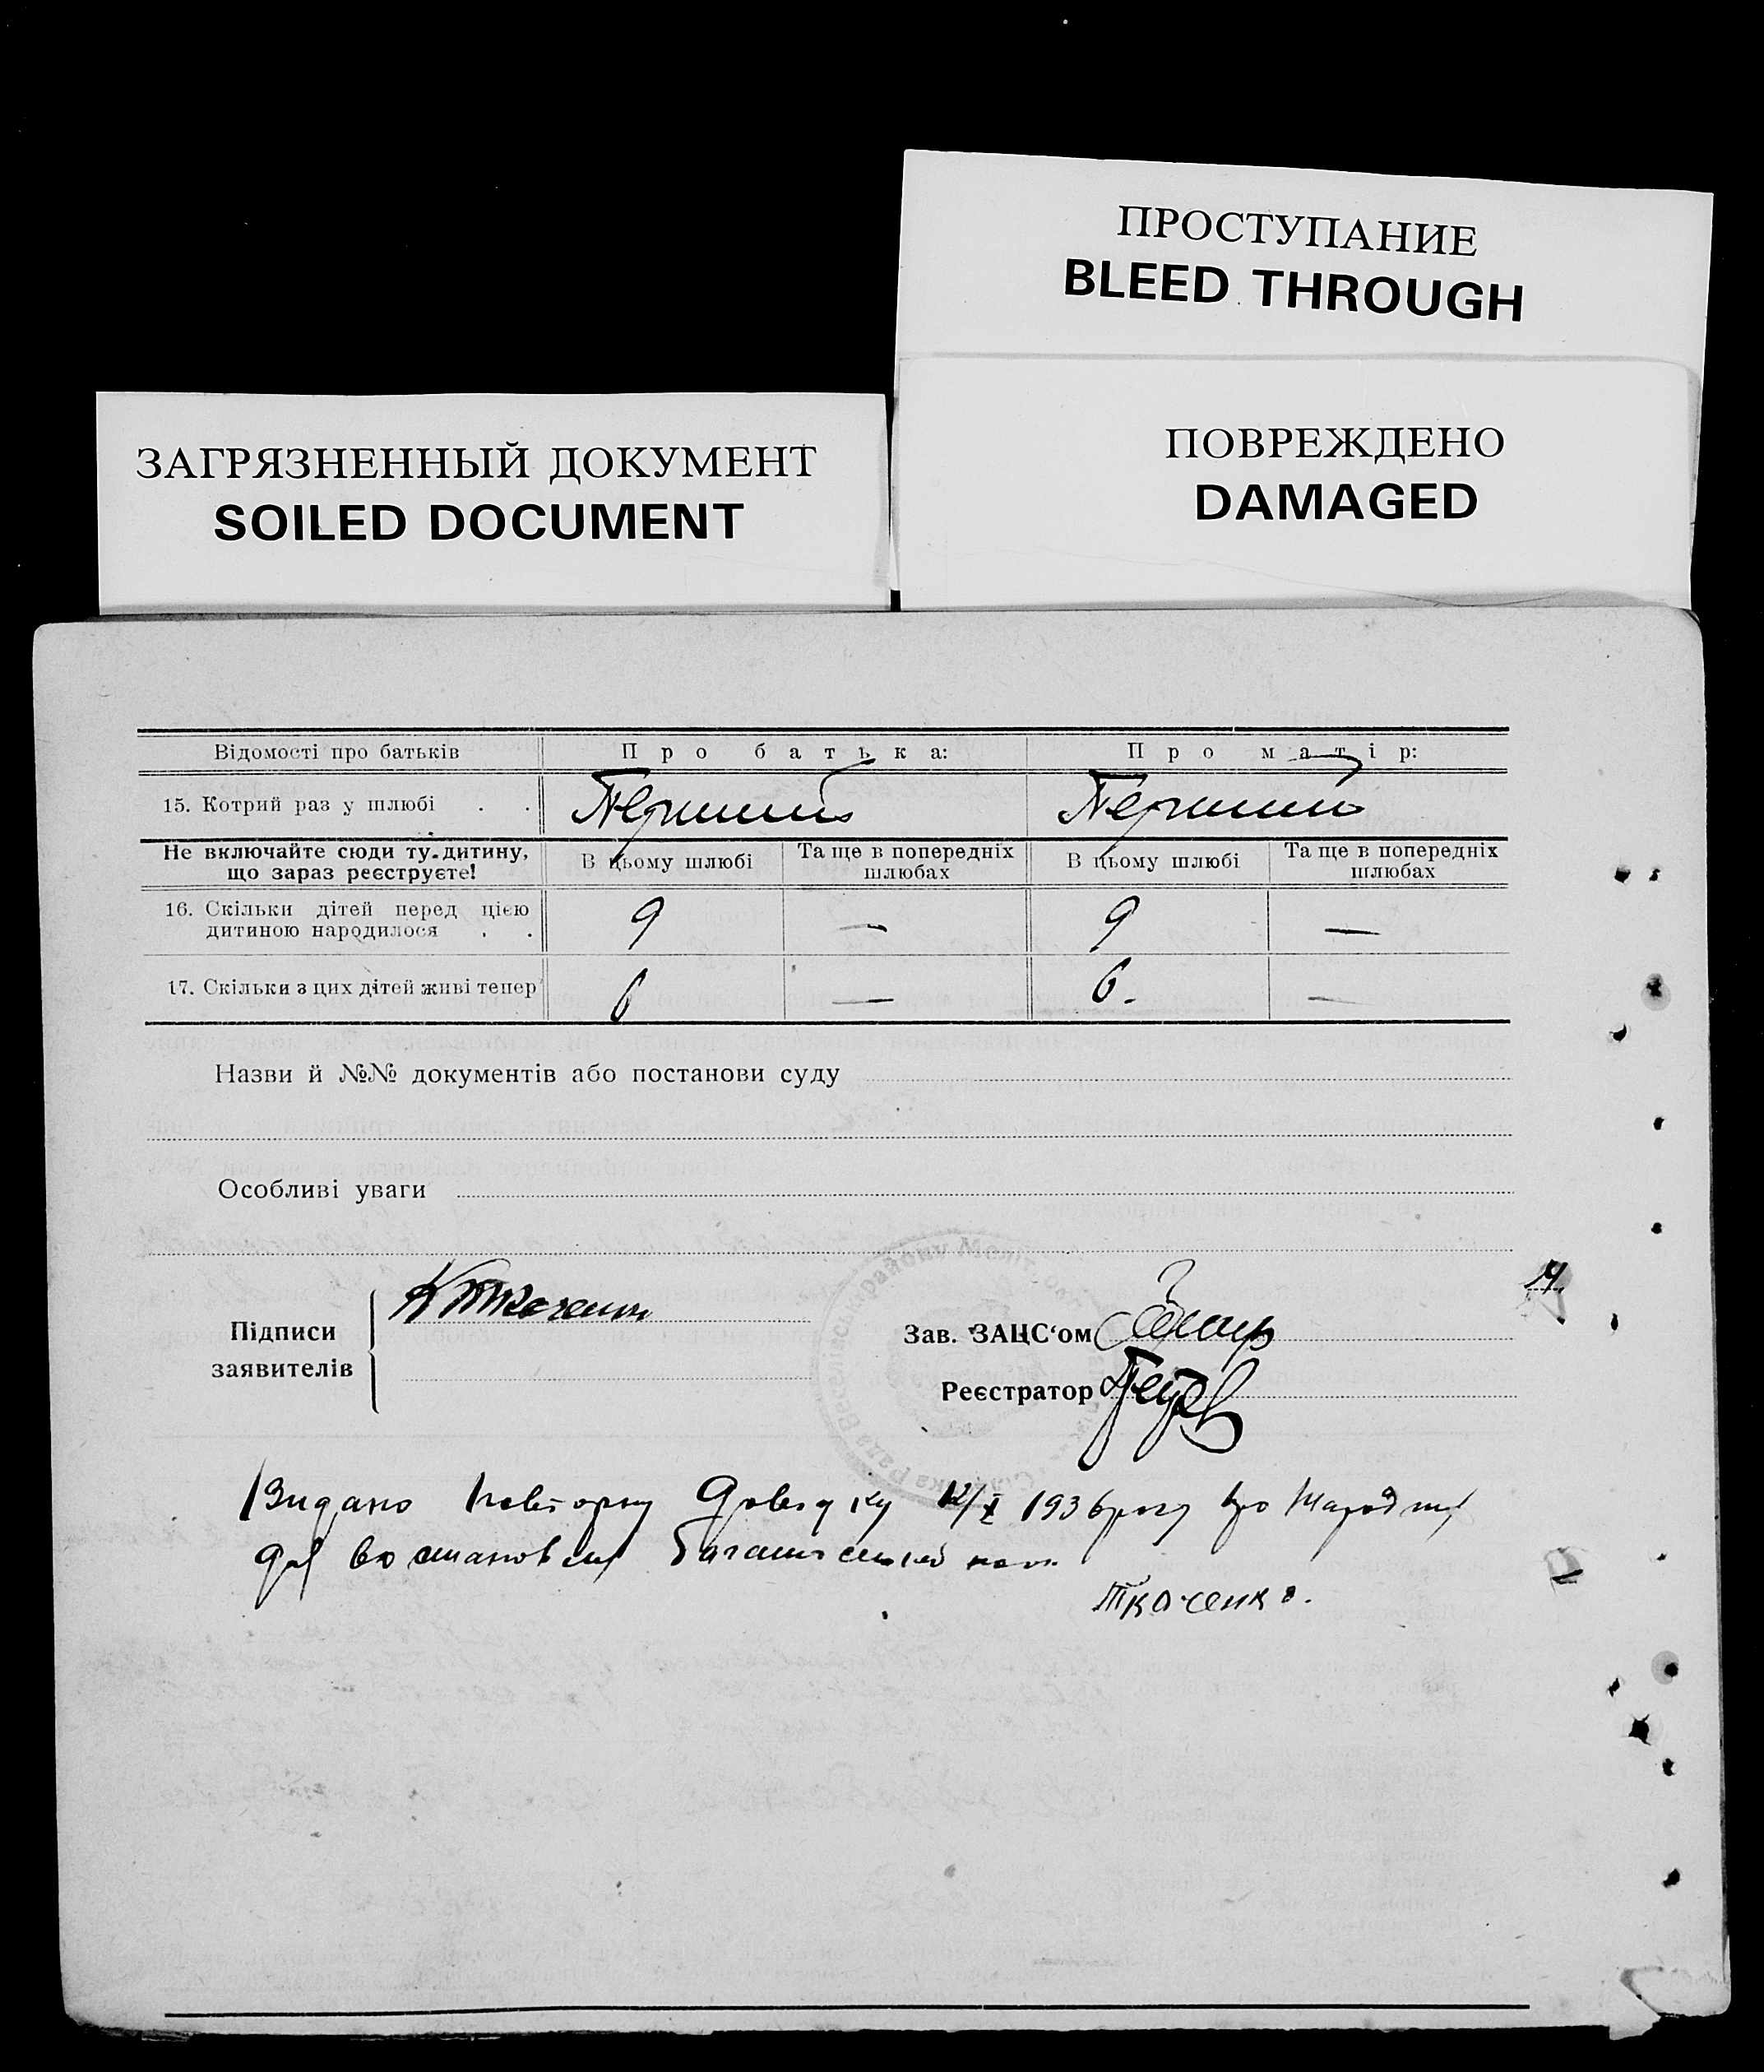 ПРОСТУПАНИЕ
BLEED THROUGH
ПОВРЕЖДЕНО
DAMAGED
ЗАГРЯЗНЕННЫЙ ДОКУМЕНТ
SOILED DOCUMENT
Відомості про батьків Про батька: Про матір:
15. Котрий раз у шлюбі . . Перший Перший
Не включайте сюди ту дитину, що зараз реєструєте! В цьому шлюбі Та ще в попередніх шлюбах В цьому шлюбі Та ще в попередніх шлюбах
16. Скільки дітей перед цією
дитиною народилося . . 9 — 9 —
17. Скільки з цих дітей живі тепер 6 — 6. —
Назви й №№ документів або постанови суду
Особливі уваги
Підписи
заявителів
Зав. ЗАЦС‘ом
Реєстратор
Видано повторну довідку 12/X 1936 року про
для
Ткаченко.